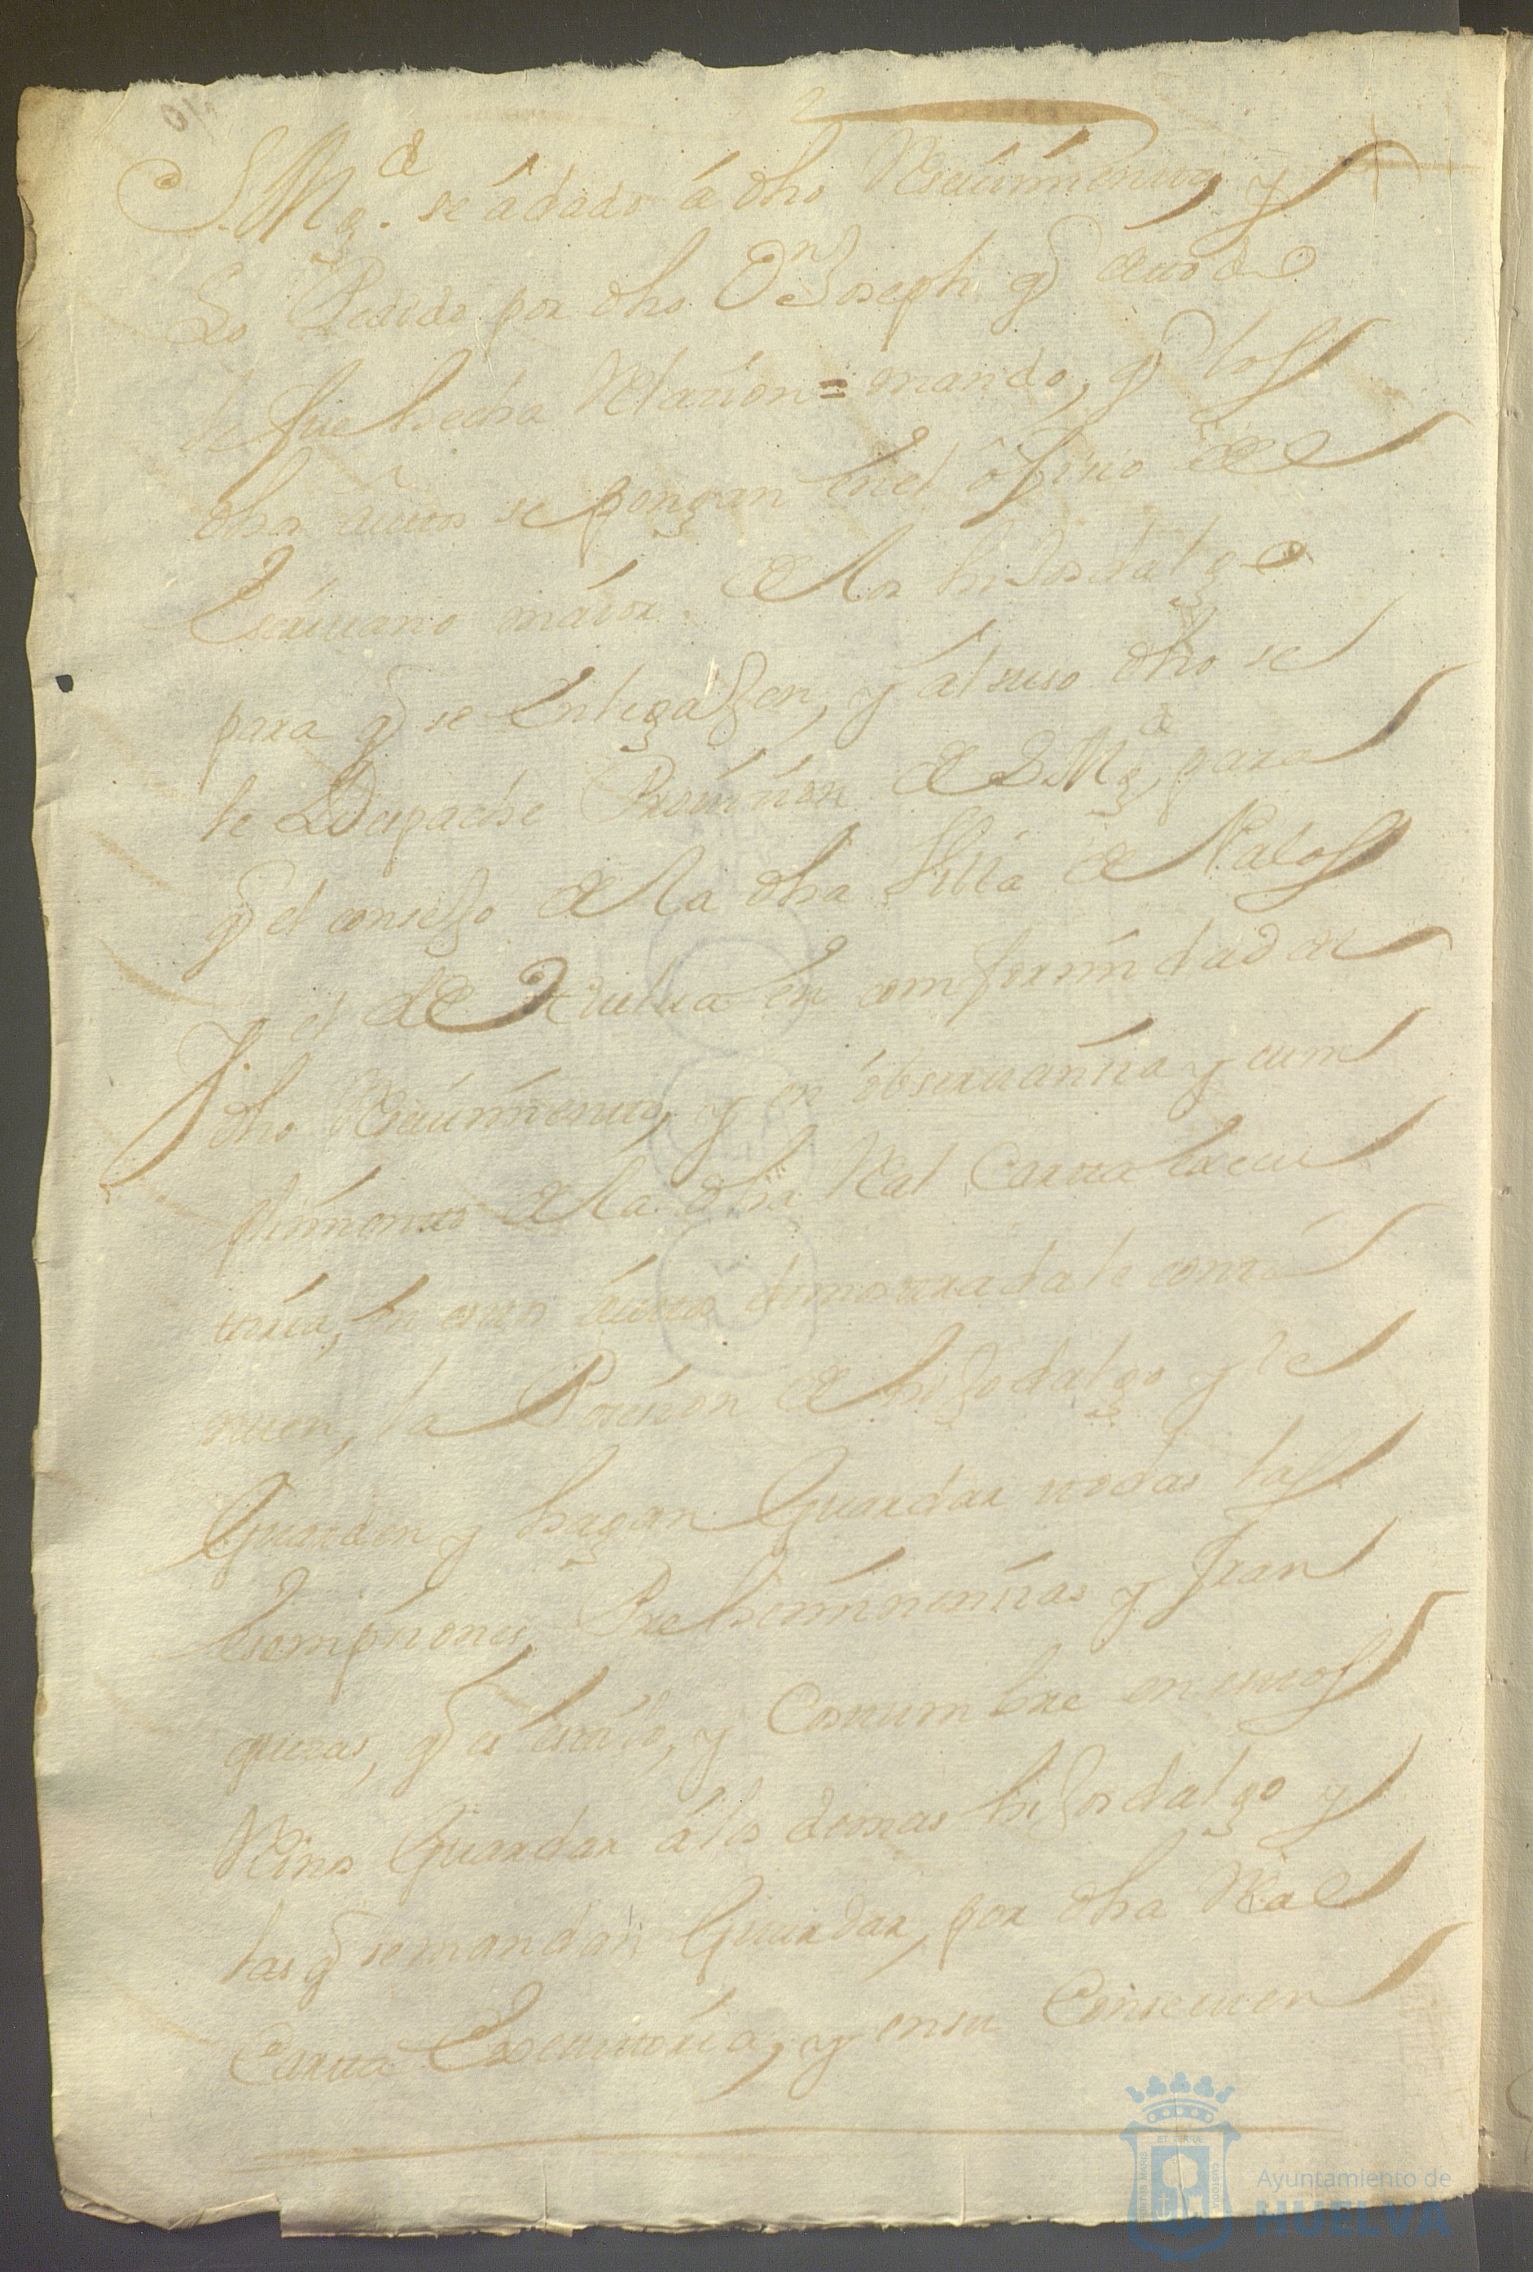 S. Mgd. se á dado á dho Resçiuimiento, y
Lo Pedido por dho Dn Joseph q̃ de uno
le fue hecha Relaçion = mando, q̃ los
dhos autos se pongan en el ofiçio del
Escriuano maior. de los hijosdalgo
para q̃ se entegajen, y al suso dho se
le Despache Prouiçion de S. Mgd, para
q̃ el consejo de la dha Villa de Palos
Y el de Huelua en comformidad de
dho Resçiuimiento, y en obseruançia y cum
plimiento de la dha Real Carta Execu
toria, en estos autos demostrada le conti
nuen, la Poseçion de hijodalgo y le
Guarden y hagan Guardar todas las
Esempçiones, Prehéminençias y fran
quezas, q̃ es estilo, y Costumbre en estos
Reinos Guardar á los demas hijosdalgo y
las q̃ se mandan Guardar, por dha Real
Carta Executoria, y en su Consecuen
Ayuntamiento de
HUELVA